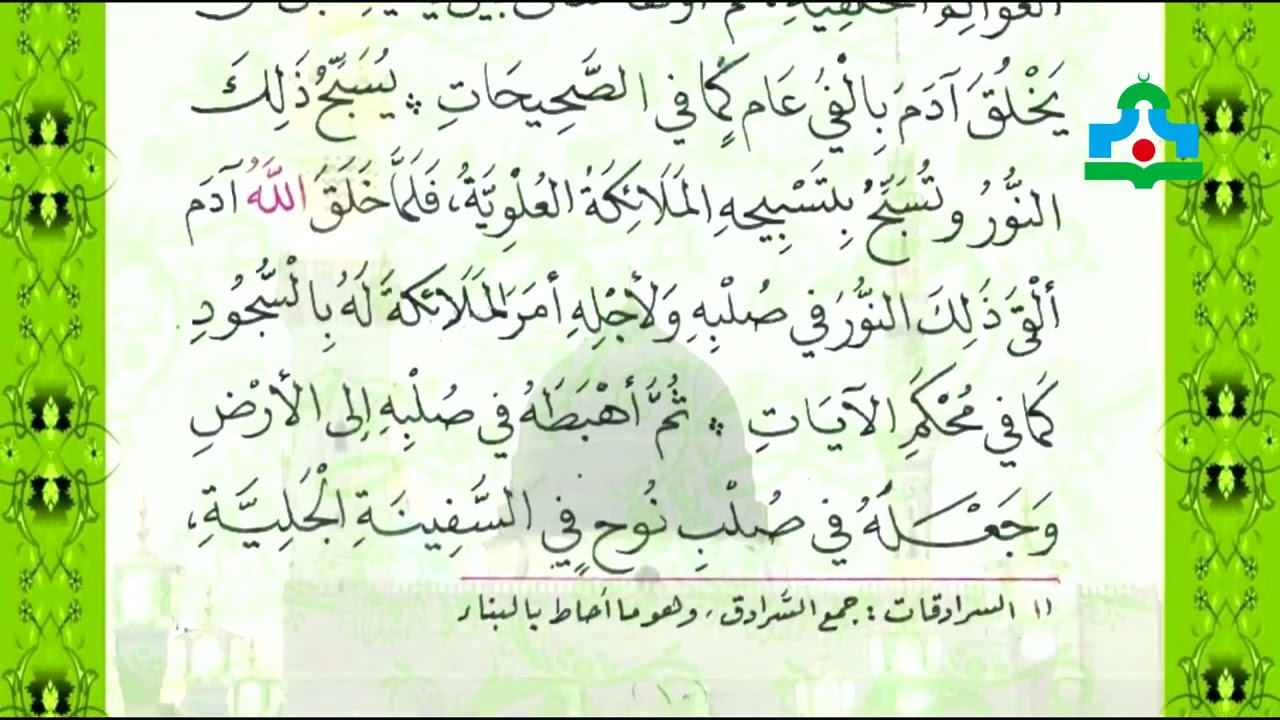 يَخْلُقَ آدَمَ بِأَلْفَيْ عَامٍ كَمَا فِي الصَّحِيحَاتِ ۞ يُسَبِّحُ ذَلِكَ
النُّورُ وَتُسَبِّحُ بِتَسْبِيحِهِ المَلَائِكَةُ العُلْوِيَّةُ، فَلَمَّا خَلَقَ اللهُ آدَمَ
أَلْقَى ذَلِكَ النُّورَ فِي صُلْبِهِ وَلأَجْلِهِ أمَرَ المَلَائكةَ لَهُ بِالْسُّجُودِ
كَمَا فِي مُحْكَمِ الآيَاتِ ۞ ثُمَّ أَهْبَطَهُ فِي صُلْبِهِ إِلى الأَرْضِ
وَجَعْلَهُ فِي صُلْبِ نُوحٍ فِي السَّفِينَةِ الْجَلِيَّةِ،
(١ السرادقات: جمع السّرادق، وهو ما أحاط بالبناء